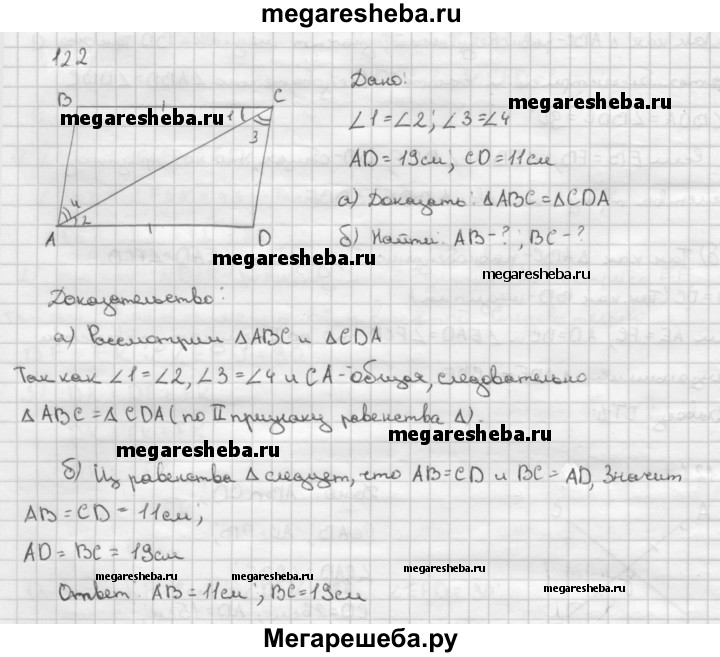 megaresheba.ru
122
Дано:
B
C
megaresheba.ru
1
megaresheba.ru
∠1=∠2; ∠3=∠4
3
AD=19см; CD=11см
4
2
а) Доказать: ΔABC=ΔCDA
A
D
б) Найти: AB-?; BC-?
megaresheba.ru
megaresheba.ru
Доказательство:
а) Рассмотрим ΔABC и ΔCDA
Так как ∠1=∠2, ∠3=∠4 и CA-общая, следовательно
ΔABC=ΔCDA (по II признаку равенства Δ).
megaresheba.ru
megaresheba.ru
б) Из равенства Δ следует, что AB=CD и BC=AD, Значит
AB=CD=11см;
AD=BC=19см
megaresheba.ru
megaresheba.ru
megaresheba.ru
megaresheba.ru
Ответ. AB=11см; BC=19см
Мегарешеба.ру